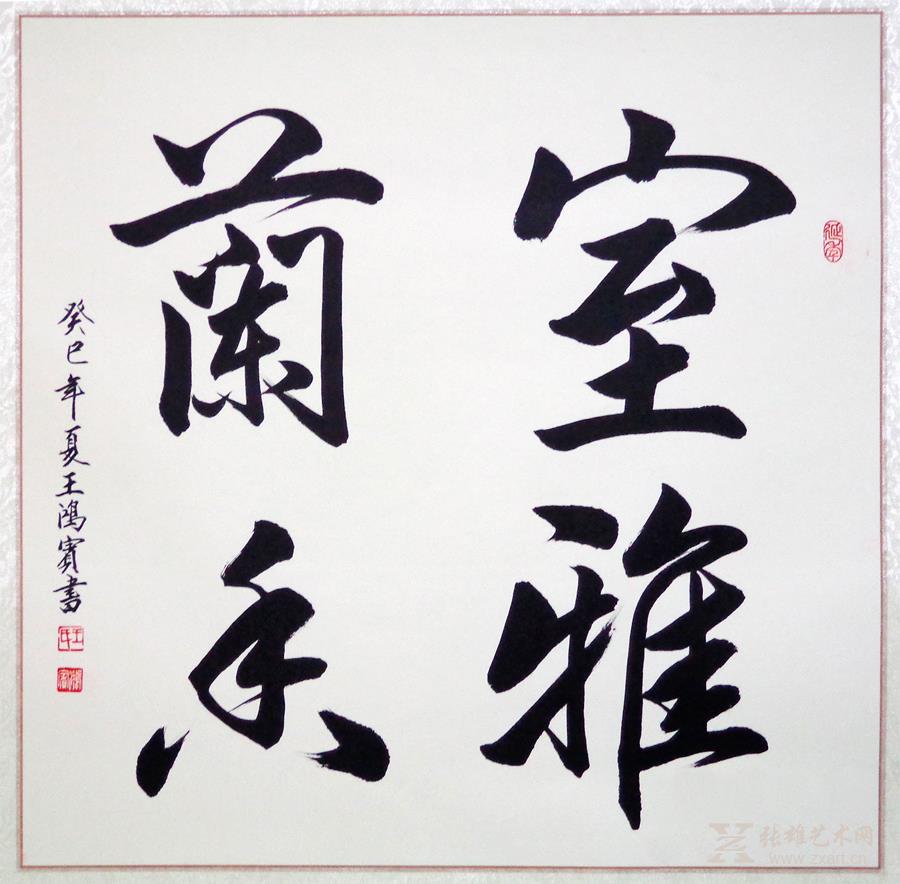 室雅
蘭香
癸巳年夏王鴻賓書
延年
王氏
张雄艺术网
www.zxart.cn